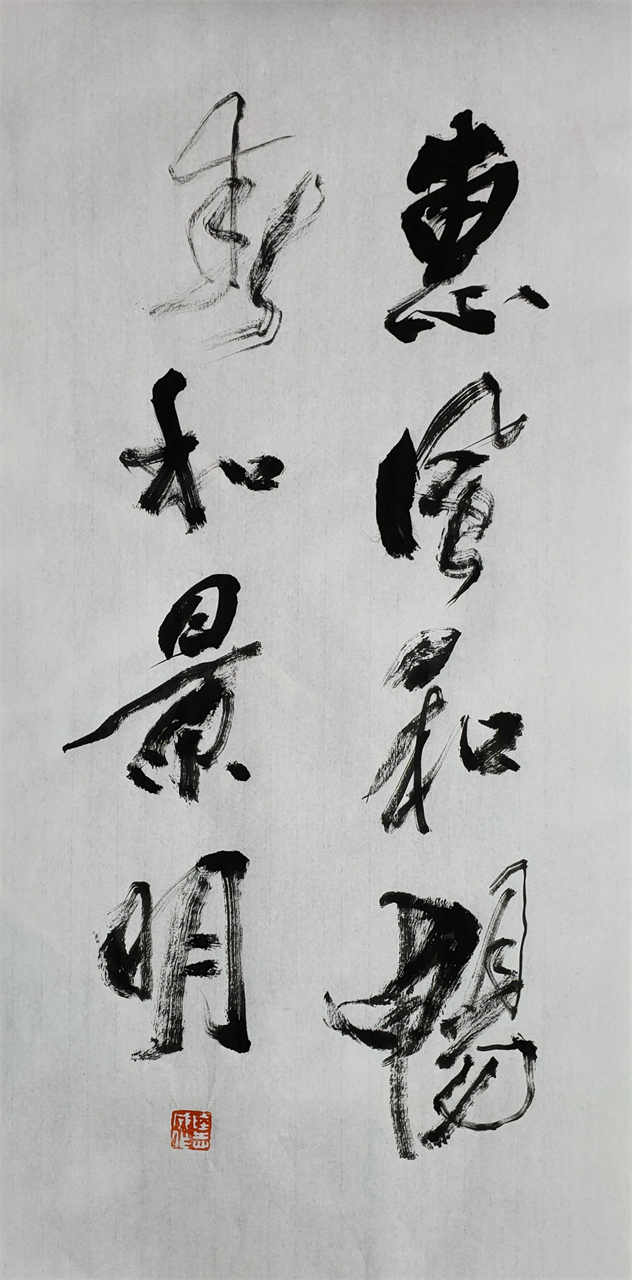 惠風和暢
春和景明